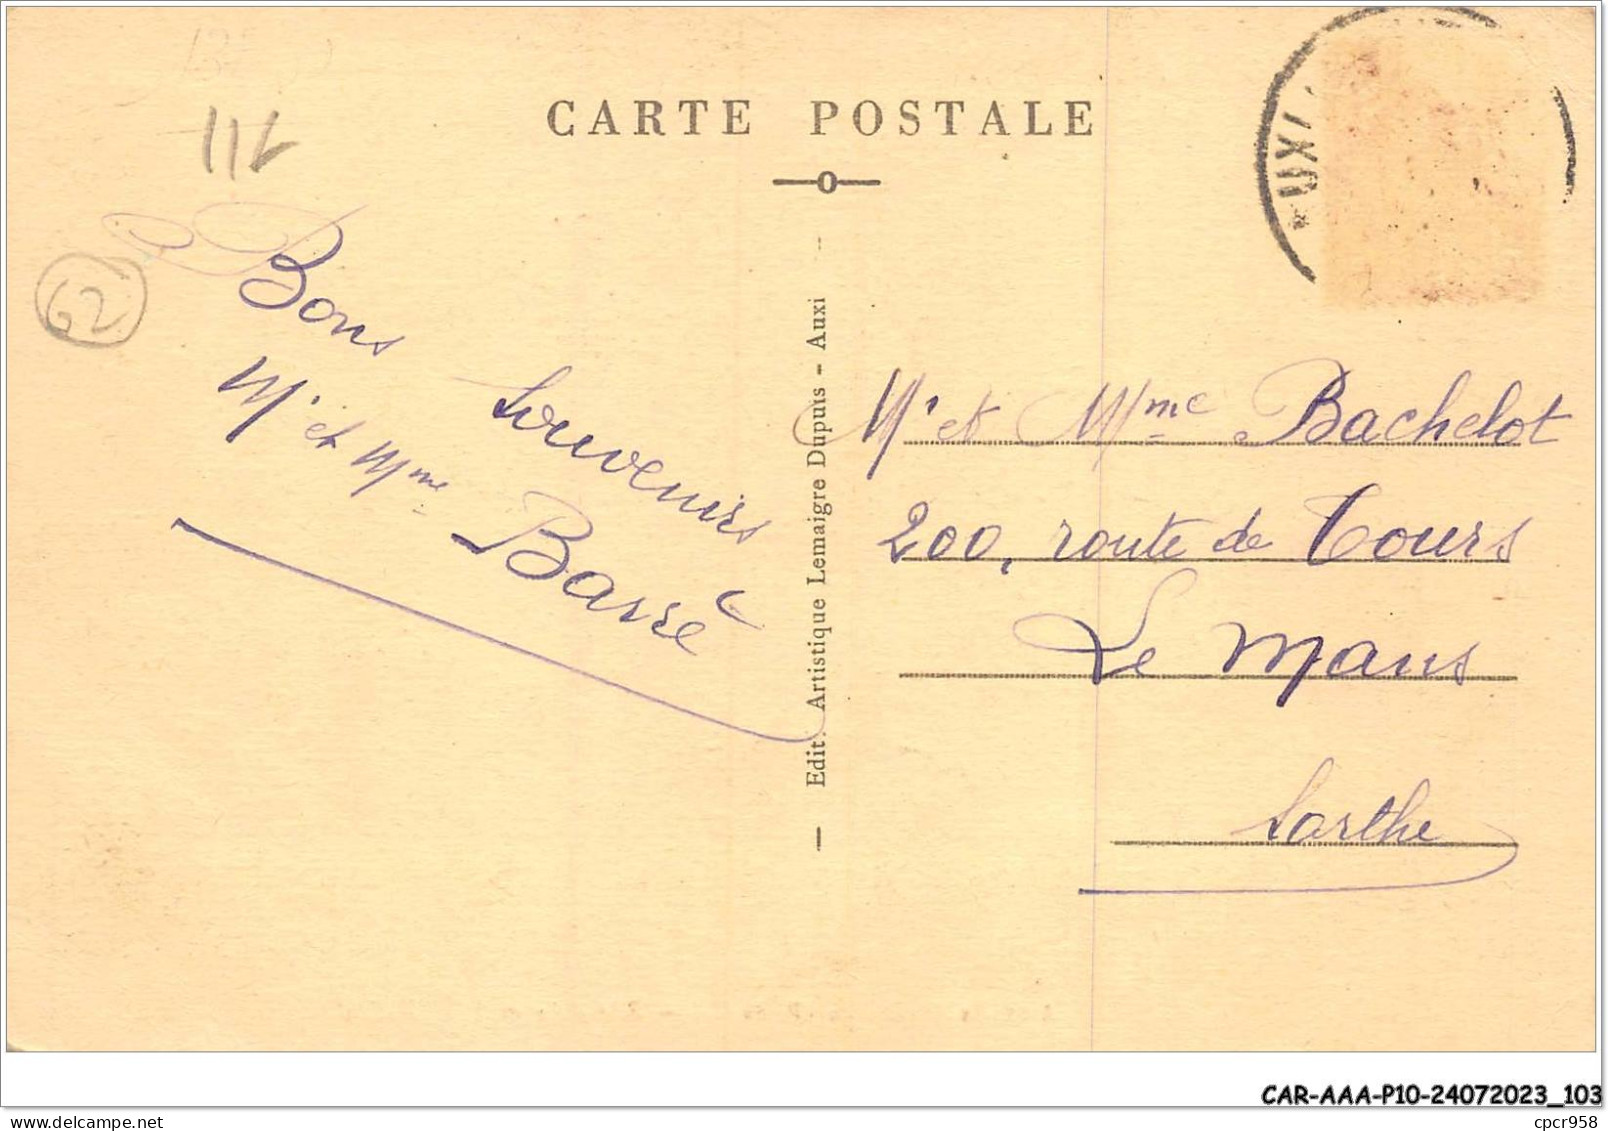 CARTE POSTALE
62
Bons
Souvenirs
Mr et Mme Barré
Edit. Artistique Lemaigre Dupuis - Auxi
Mr et Mme Bachelot
200, route de Tours
Le Mans
Sarthe
CAR-AAA-P10-24072023_103
delcampe.net
cpcr958